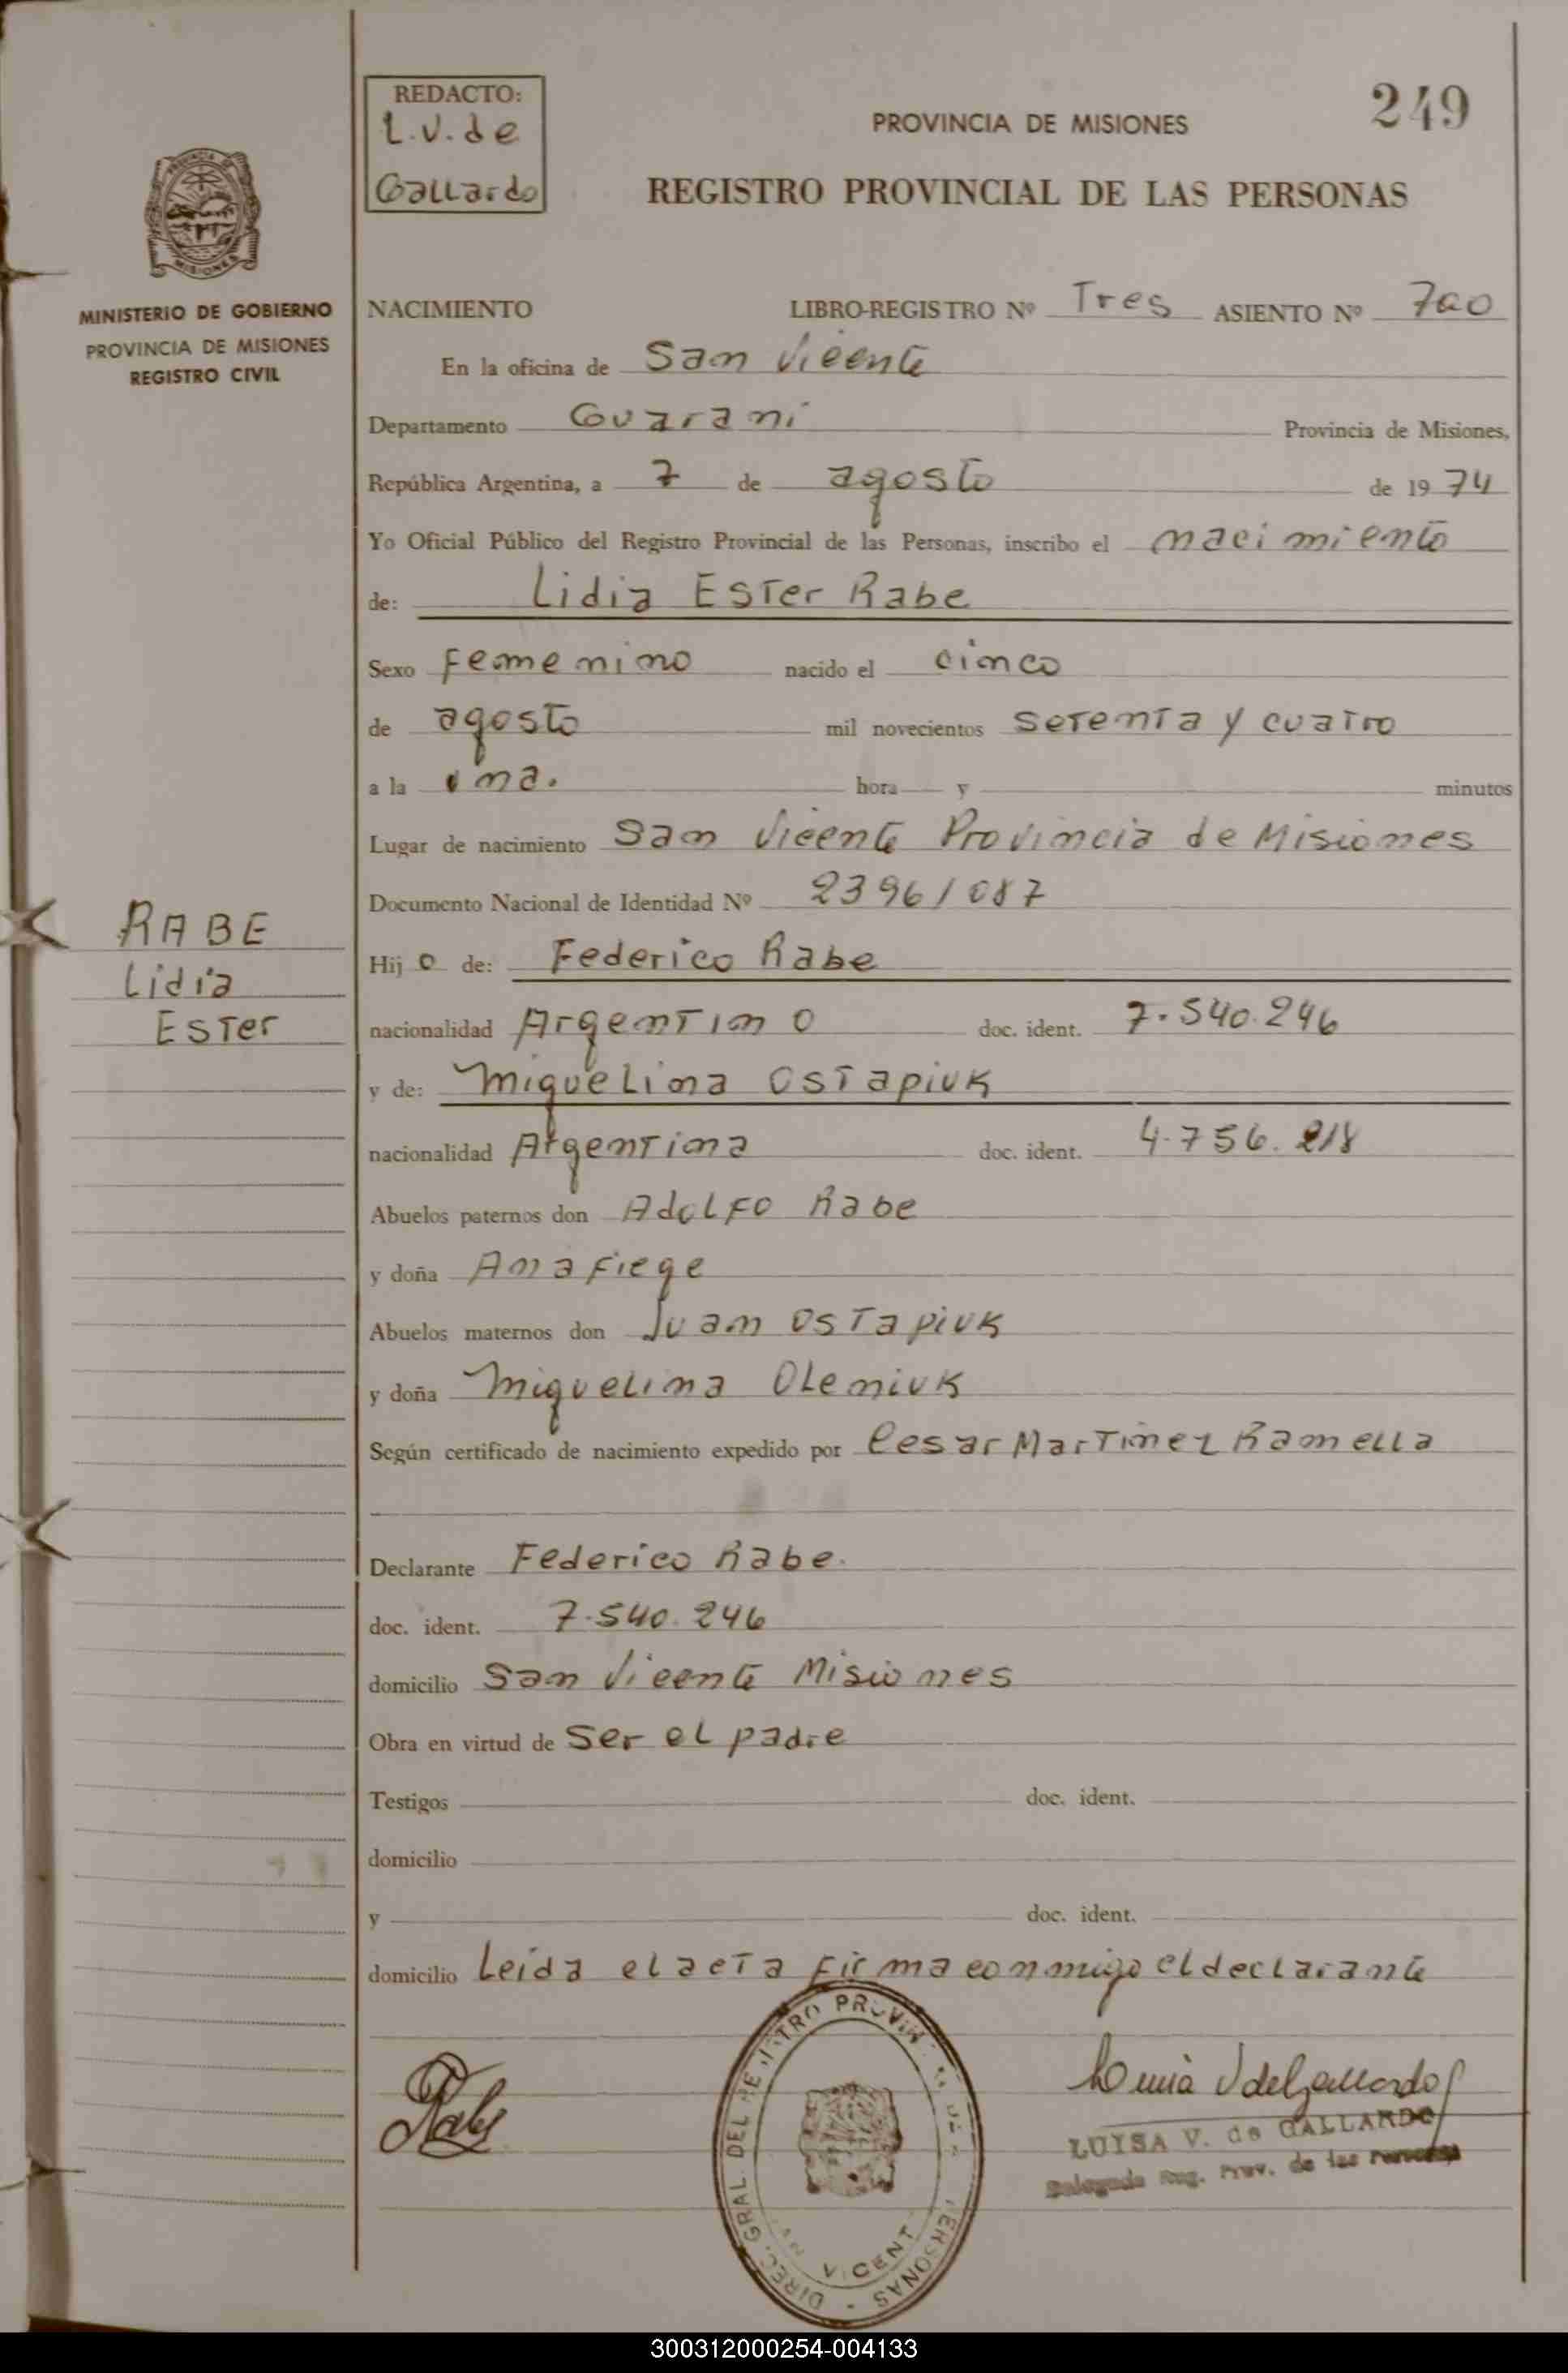 REDACTO:
L.V. de
Gallardo
249
PROVINCIA DE MISIONES
REGISTRO PROVINCIAL DE LAS PERSONAS
MISIONES
MINISTERIO DE GOBIERNO
PROVINCIA DE MISIONES
REGISTRO CIVIL
NACIMIENTO LIBRO-REGISTRO Nº Tres ASIENTO Nº 700
En la oficina de San Vicente
Departamento Guaraní Provincia de Misiones,
República Argentina, a 7 de agosto de 1974
Yo Oficial Público del Registro Provincial de las Personas, inscribo el nacimiento
de: Lidia Ester Rabe
Sexo Femenino nacido el cinco
de agosto mil novecientos setenta y cuatro
a la una. hora y minutos
Lugar de nacimiento San Vicente Provincia de Misiones
Documento Nacional de Identidad Nº 23961087
RABE
Lidia
Ester
Hijo de: Federico Rabe
nacionalidad Argentino doc. ident. 7.540.246
y de: Miguelina Ostapiuk
nacionalidad Argentina doc. ident. 4.756.218
Abuelos paternos don Adolfo Rabe
y doña Ana Fiege
Abuelos maternos don Juan Ostapiuk
y doña Miguelina Oleniuk
Según certificado de nacimiento expedido por Cesar Martinez Ramella
Declarante Federico Rabe.
doc. ident. 7.540.246
domicilio San Vicente Misiones
Obra en virtud de Ser el padre
Testigos doc. ident.
domicilio
y doc. ident.
domicilio Leida el acta firma conmigo el declarante
Rabe
DIREC. GRAL. DEL REGISTRO PROVIN. DE PERSONAS
VICENT
Luisa V de Gallardo
LUISA V. de GALLARDO
Delegada Reg. Prov. de las Personas
300312000254-004133